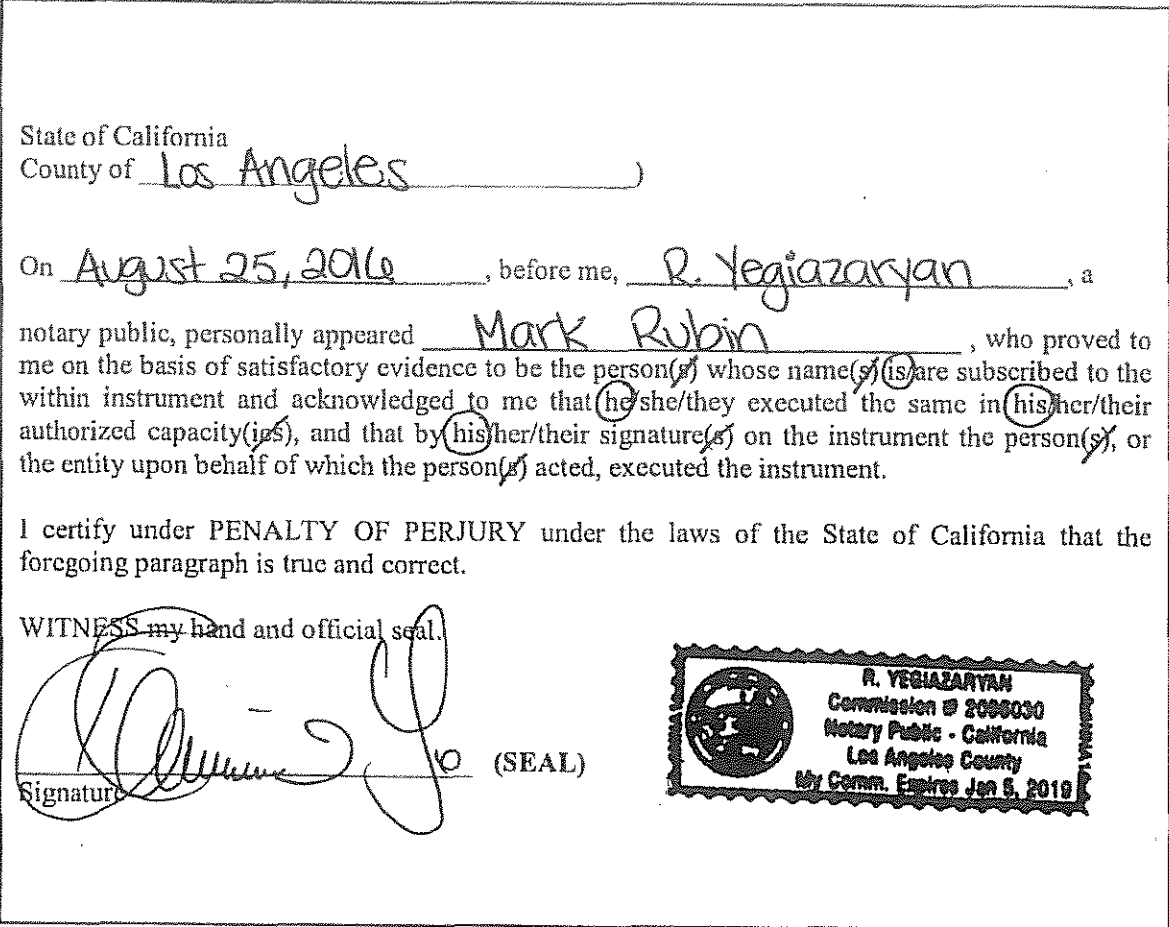 State of California
County of Los Angeles )
On August 25, 2016, before me, R. Yegiazaryan, a
notary public, personally appeared Mark Rubin, who proved to
me on the basis of satisfactory evidence to be the person(s) whose name(s) is/are subscribed to the
within instrument and acknowledged to me that he/she/they executed the same in his/her/their
authorized capacity(ies), and that by his/her/their signature(s) on the instrument the person(s), or
the entity upon behalf of which the person(s) acted, executed the instrument.
I certify under PENALTY OF PERJURY under the laws of the State of California that the
foregoing paragraph is true and correct.
WITNESS my hand and official seal.
(SEAL)
Signature
R. YEGIAZARYAN
Commission #
Notary Public - California
Los Angeles County
My Comm. Expires Jan 5, 2019